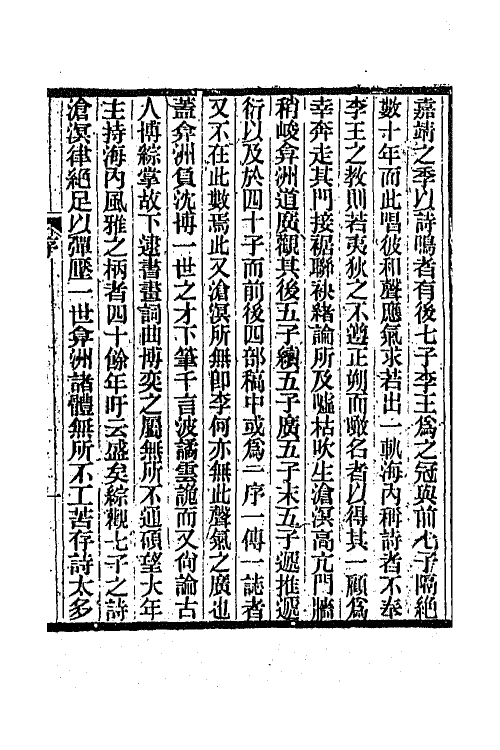 嘉靖之季以詩鳴者有後七子李王為之冠與前七子隔絕
數十年而此唱彼和聲應氣求若出一軌海內稱詩者不奉
李王之教則若夷狄之不遵正朔而噉名者以得其一顧為
幸奔走其門接裾聯袂緒論所及噓枯吹生滄溟高亢門牆
稍峻弇洲道廣觀其後五子續五子廣五子末五子遞推遞
衍以及於四十子而前後四部稿中或為一序一傳一誌者
又不在此數焉此又滄溟所無即李何亦無此聲氣之廣也
蓋弇洲負沈博一世之才下筆千言波譎雲詭而又尙論古
人博綜掌故下逮書畫詞曲博奕之屬無所不通碩望大年
主持海內風雅之柄者四十餘年吁云盛矣綜觀七子之詩
滄溟律絕足以彈壓一世弇洲諸體無所不工苦存詩太多
序
一